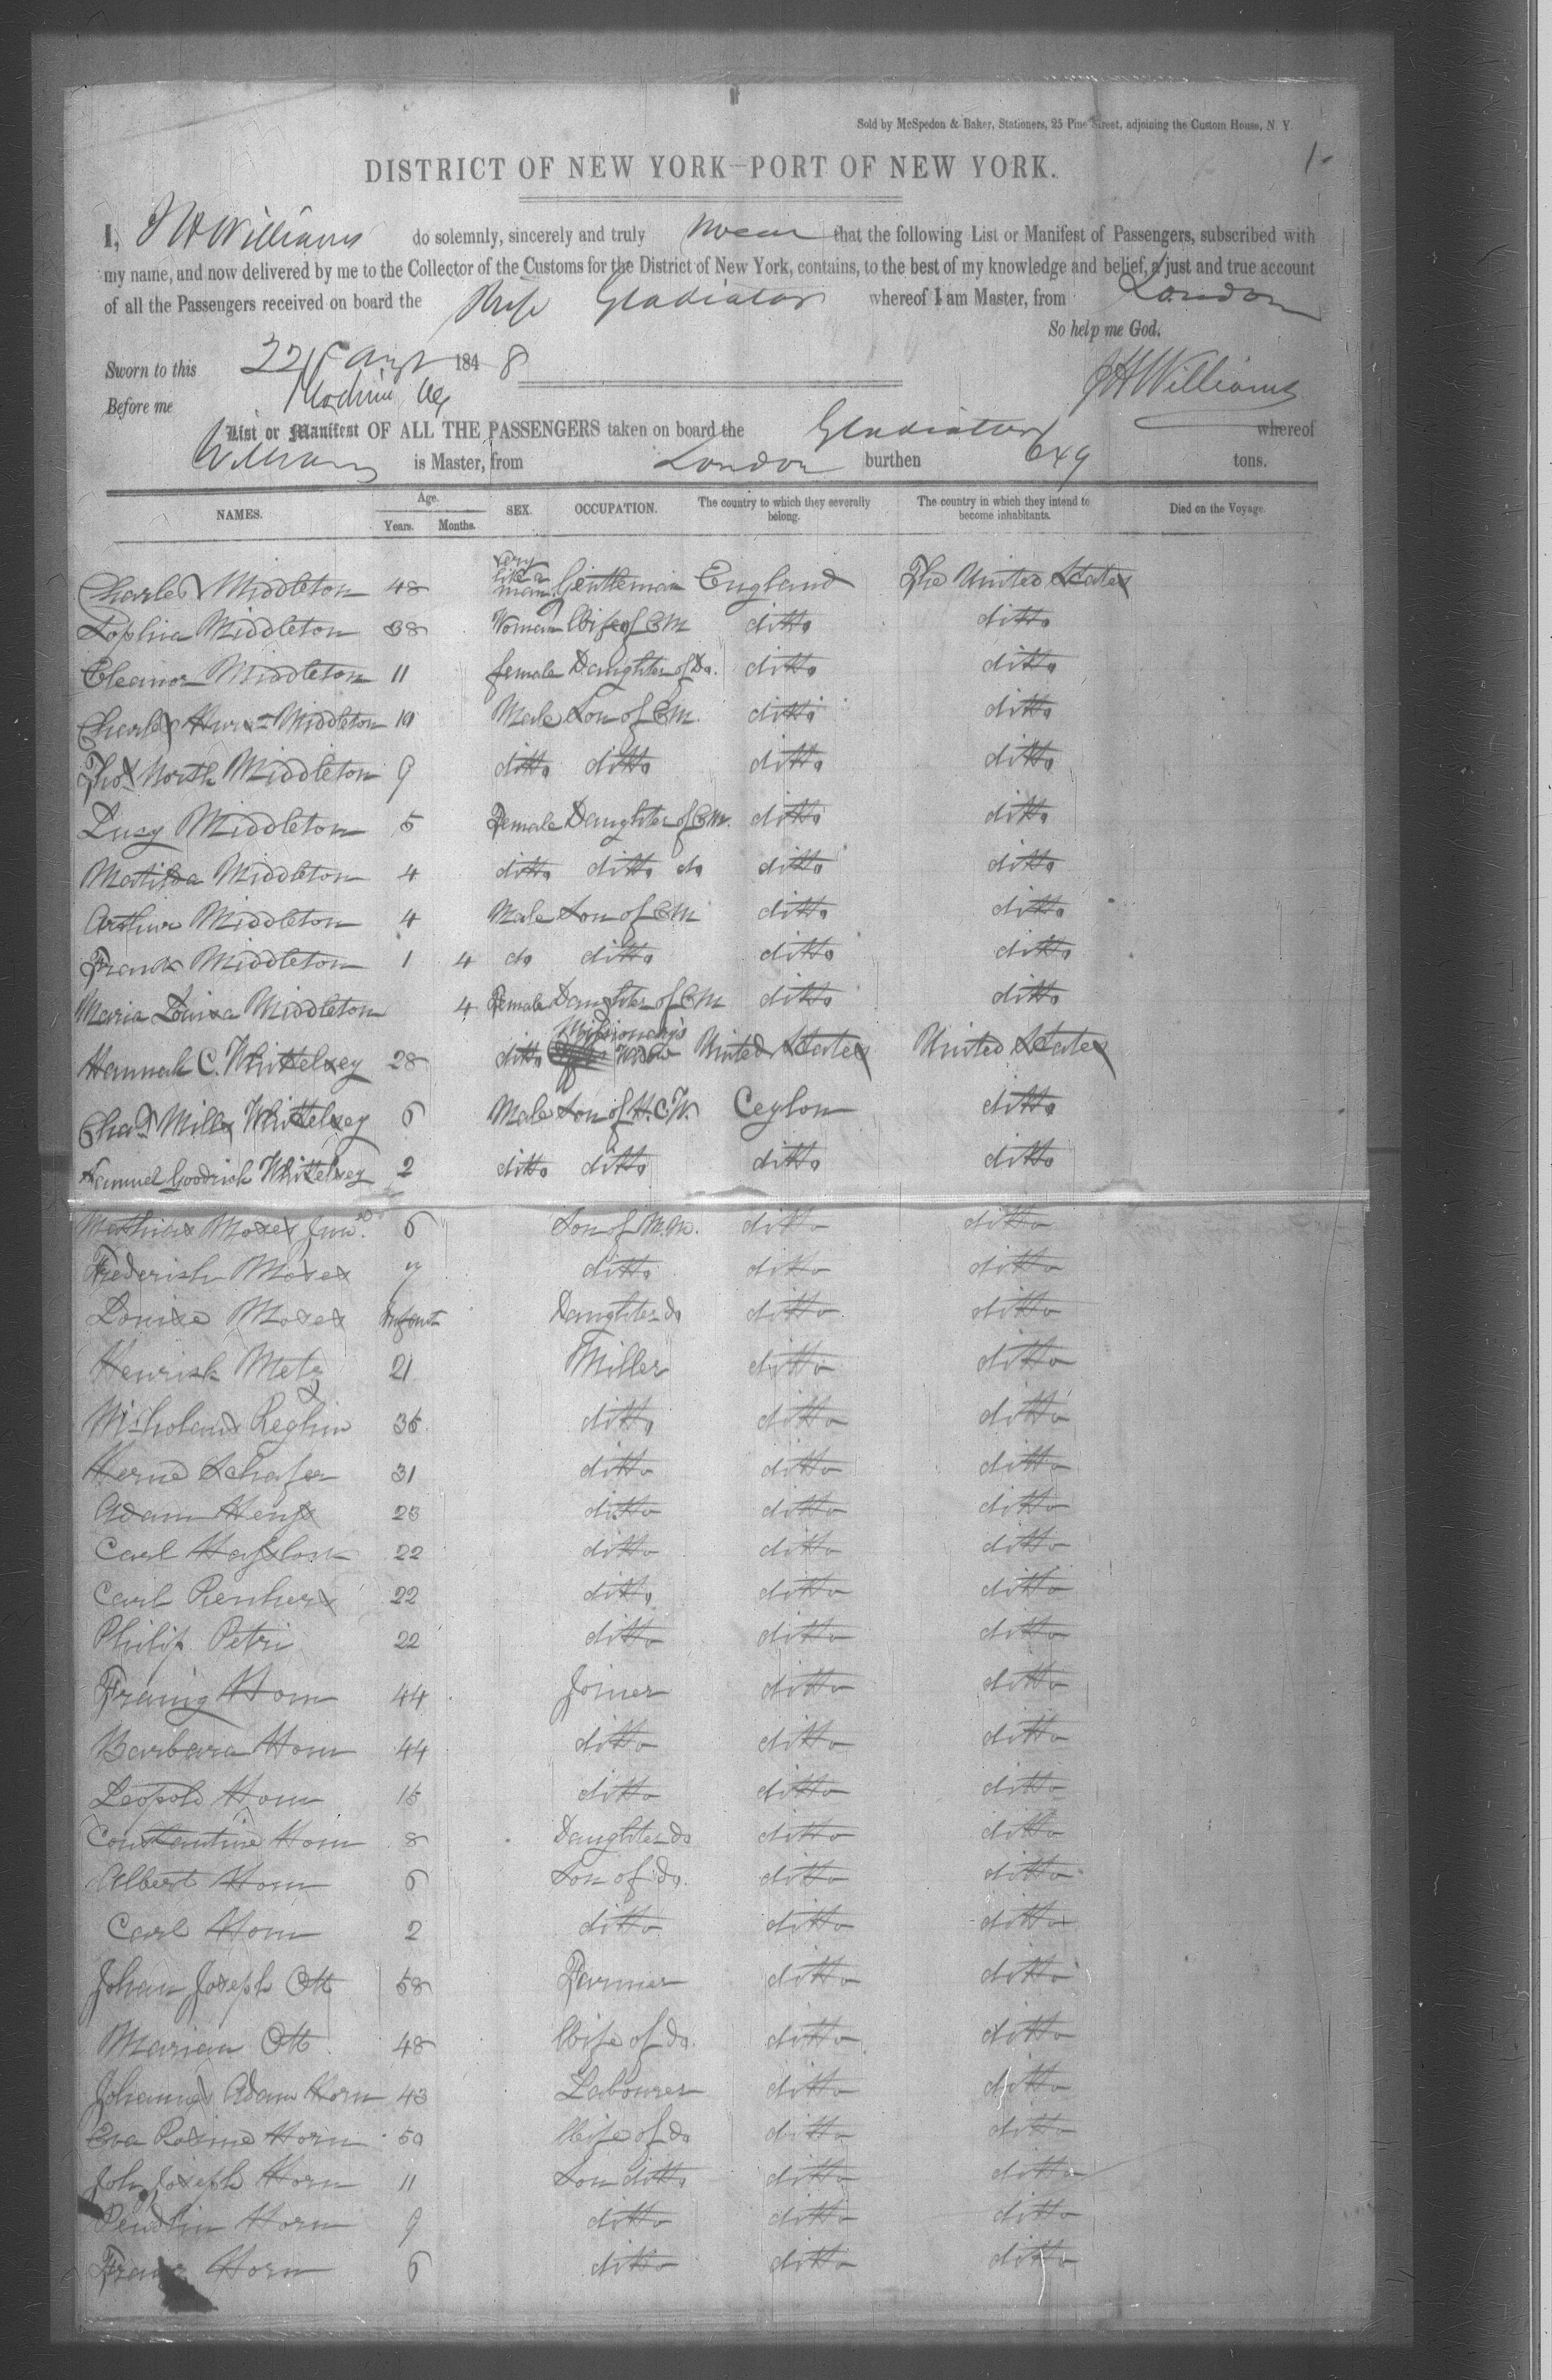 Sold by McSpedon & Baker, Stationers, 25 Pine Street, adjoining the Custom House, N. Y.
1-
DISTRICT OF NEW YORK—PORT OF NEW YORK.
I, J H Williams do solemnly, sincerely and truly swear that the following List or Manifest of Passengers, subscribed with
my name, and now delivered by me to the Collector of the Customs for the District of New York, contains, to the best of my knowledge and belief, a just and true account
of all the Passengers received on board the Ship Gladiator whereof I am Master, from London
So help me God.
Sworn to this 22 Augt 1848
J H Williams
Before me
List or Manifest OF ALL THE PASSENGERS taken on board the Gladiator whereof
Williams is Master, from London burthen 649 tons.
NAMES. Age. Years. Months. SEX. OCCUPATION. The country to which they severally belong. The country in which they intend to become inhabitants. Died on the Voyage.
Charles Middleton 48 very like a man Gentleman England The United States
Sophia Middleton 38 Woman Wife of C M ditto ditto
Eleanor Middleton 11 female Daughter of Do. ditto ditto
Charles Middleton 10 Male Son of C M. ditto ditto
Thos North Middleton 9 ditto ditto ditto ditto
Lucy Middleton 5 Female Daughter of C M. ditto ditto
Matilda Middleton 4 ditto ditto do ditto ditto
Arthur Middleton 4 Male Son of C M ditto ditto
Frank Middleton 1 4 do ditto ditto ditto
Maria Louisa Middleton 4 Female Daughter of C M ditto ditto
Hannah C. Whittelsey 28 ditto Missionary's Widow United States United States
Chas Mills Whittelsey 6 Male Son of H. C. W. Ceylon ditto
Samuel Goodrich Whittelsey 2 ditto ditto ditto ditto
Mathias Moses Junr. 6 Son of M. M. ditto ditto
Frederish Moses 7 ditto ditto ditto
Louise Moses Infant Daughter do ditto ditto
Henrish Metz 21 Miller ditto ditto
Reghin 36 ditto ditto ditto
Schafer 31 ditto ditto ditto
Adam 23 ditto ditto ditto
Carl 22 ditto ditto ditto
Carl 22 ditto ditto ditto
Philip Petri 22 ditto ditto ditto
Horn 44 Joiner ditto ditto
Barbara Horn 44 ditto ditto ditto
Leopold Horn 15 ditto ditto ditto
Constantine Horn 8 Daughter do ditto ditto
Albert Horn 6 Son of do. ditto ditto
Carl Horn 2 ditto ditto ditto
Johan Joseph Ott 58 Farmer ditto ditto
Marian Ott 48 Wife of do. ditto ditto
Johannes Adam Horn 43 Labourer ditto ditto
Eva Rosine Horn 50 Wife of do ditto ditto
Joh. Joseph Horn 11 Son ditto ditto ditto
Horn 9 ditto ditto ditto
Franz Horn 6 ditto ditto ditto